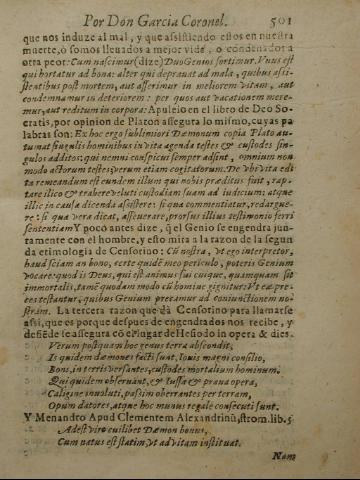 Por Don Garcia Coronel. 501
que nos induze al mal, y que assistiendo estos en nuestra
muerte, ò somos lleuados a mejor vida, o condenados a
otra peor: Cum nascimur (dize) Duo Genios sortimur. Vnus est
qui hortatur ad bona: alter qui deprauat ad mala, quibus assi-
stentibus post mortem, aut asserimur in meliorem vitam, aut
condemnamur in deteriorem: per quos aut vacationem mere-
mur, aut reditum in corpora: Apuleio en el libro de Deo So-
cratis, por opinion de Platon assegura lo mismo, cuyas pa
labras son: Ex hoc ergo sublimiori Dæmonum copia Plato au-
tumat singulis hominibus in vita agenda testes & custodes sin-
gulos additos: qui nemini conspicui semper adsint, omnium non
modo actorum testes, verum etiam cogitatorum. De vbi vita edi
ta remeandum est eundem illum qui nobis præditus fuit, rap-
tare illico & trahere veluti custodiam suam ad iudicium: atque
illic in causa dicenda assistere: si qua commentiatur, redargue-
re: si qua vera dicat, asseuerare, prorsus illius testimonio ferri
sententiam Y poco antes dize, q̃ el Genio se engendra jun-
tamente con el hombre, y esto mira a la razon de la segun
da etimologia de Censorino: Cũ nostra, vt ego interpretor,
haud sciam an bono, certe quidẽ meo periculo, poteris Genium
vocare: quod is Deus, qui est animus sui cuique, quamquam sit
immortalis, tamẽ quodam modo cũ homine gignitur: Vt eæ pre-
ces testantur, quibus Genium precamur ad coniunctionem no-
stram. La tercera razon que dà Censorino para llamarse
assi, que es porque despues de engendrados nos recibe, y
defiẽde se assegura cõ el lugar de Hesiodo in opera & dies.
Verum postquam hoc genus terra abscondit,
Is quidem dæmones facti sunt, Iouis magni consilio,
Boni, in terris versantes, custodes mortalium hominum.
Qui quidem obseruant, & iussa & praua opera,
Caligine inuoluti, passim oberrantes per terram,
Opum datores, atque hoc munus regale consecuti sunt.
Y Menandro Apud Clementem Alexandrinũ, strom. lib. 5
Adest viro cuilibet Dæmon bonus,
Cum natus est statim, vt ad vitam instituat.
Nam